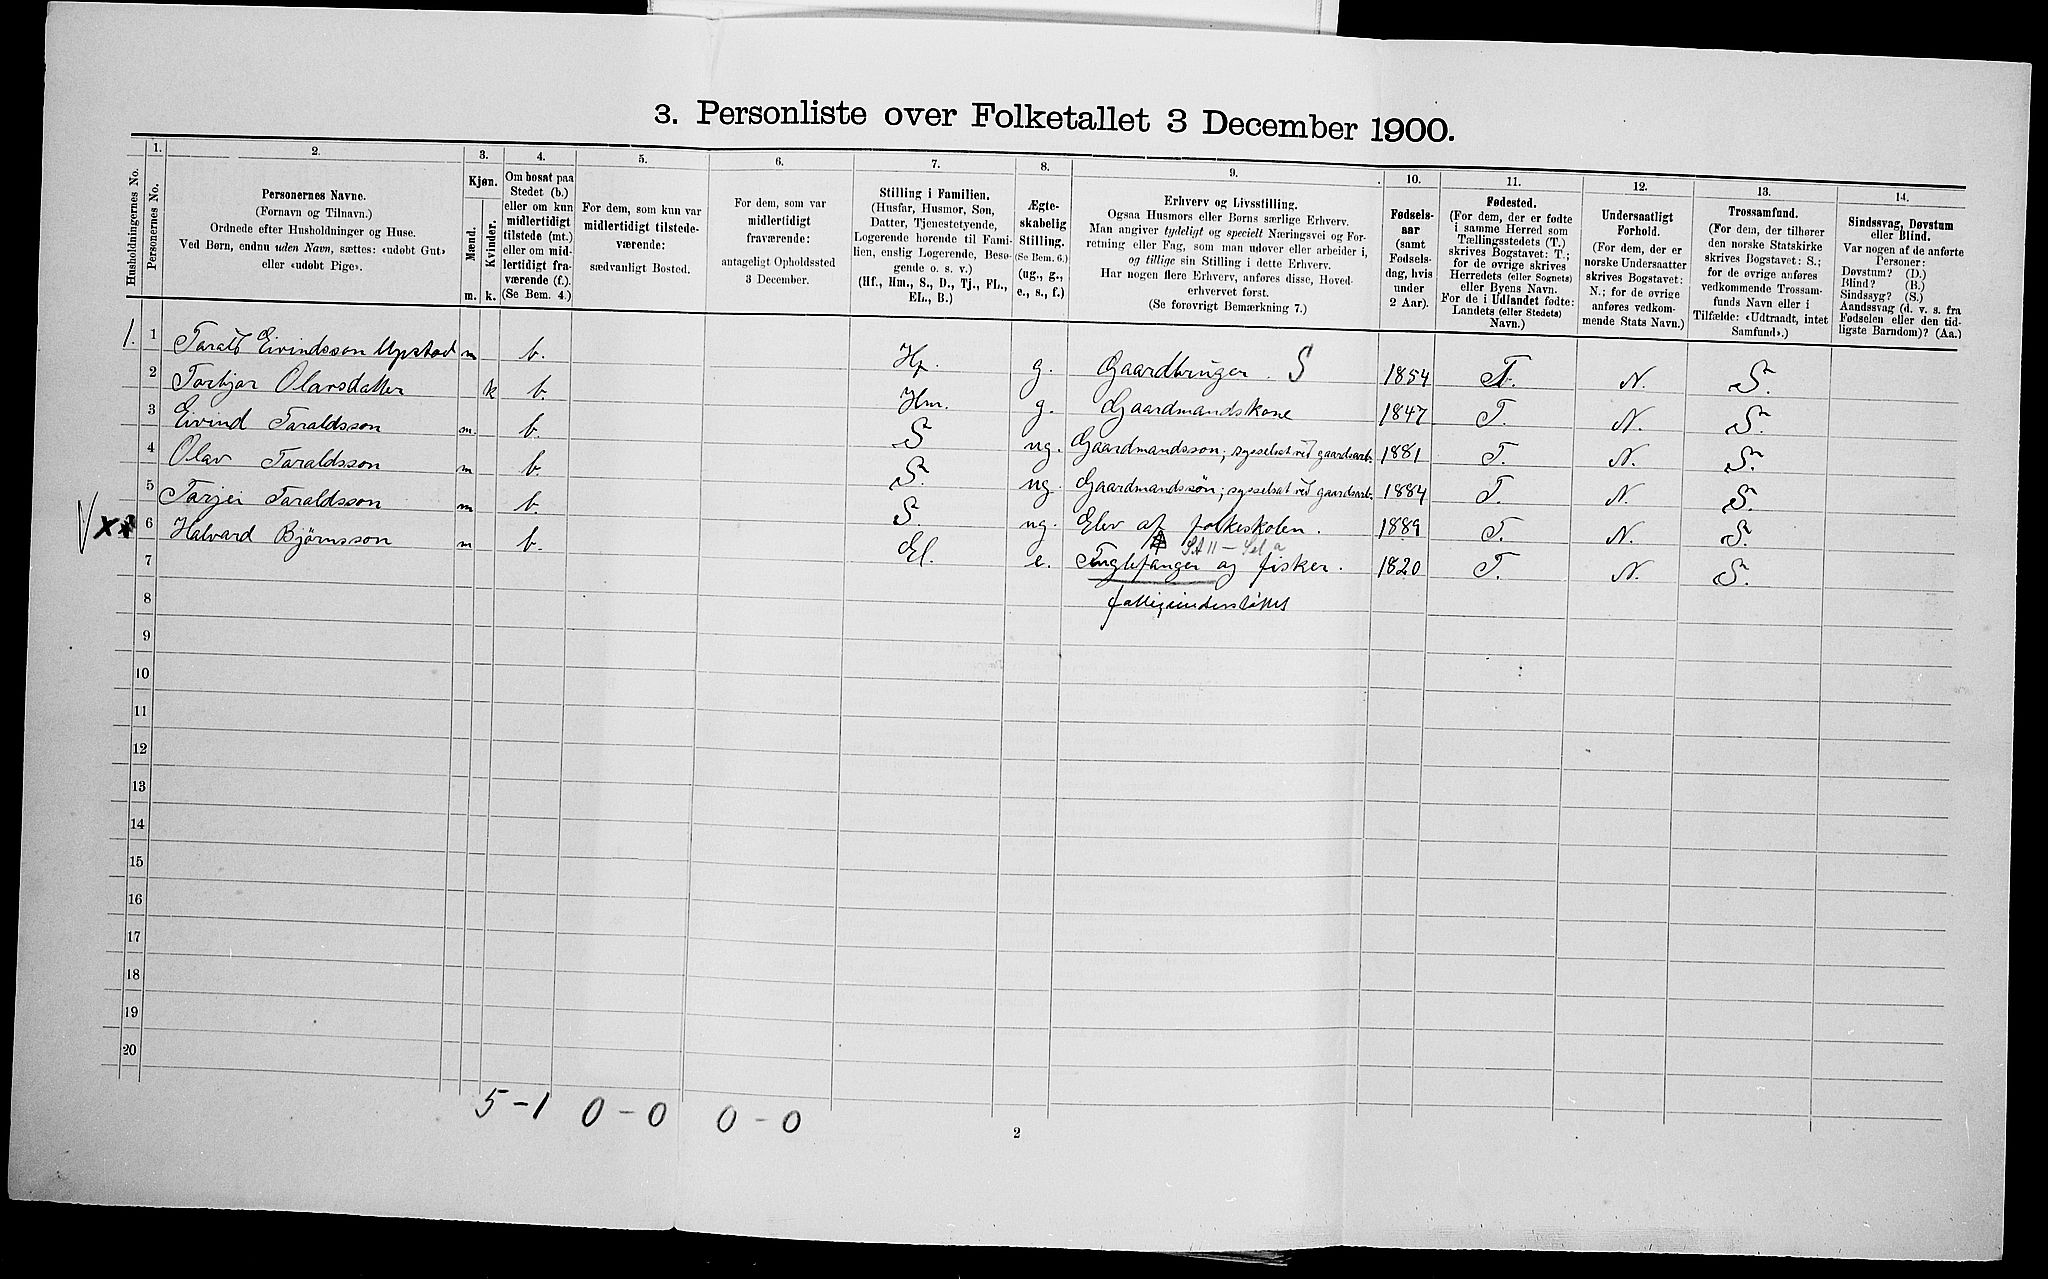 3. Personliste over Folketallet 3 December 1900.
1. 2. 3. 4. 5. 6. 7. 8. 9. 10. 11. 12. 13. 14.
Husholdningernes No.
Personernes No.
Personernes Navne.
(Fornavn og Tilnavn.)
Ordnede efter Husholdninger og Huse.
Ved Børn, endnu uden Navn, sættes: «udøbt Gut»
eller «udøbt Pige».
Kjøn.
Mænd.
Kvinder.
m. k.
Om bosat paa
Stedet (b.)
eller om kun
midlertidigt
tilstede (mt.)
eller om mid-
lertidigt fra-
værende (f.).
(Se Bem. 4.)
For dem, som kun var
midlertidigt tilstede-
værende:
sædvanligt Bosted.
For dem, som var
midlertidigt
fraværende:
antageligt Opholdssted
3 December.
Stilling i Familien.
(Husfar, Husmor, Søn,
Datter, Tjenestetyende,
Logerende hørende til Fami-
lien, enslig Logerende, Besø-
gende o. s. v.)
(Hf., Hm., S., D., Tj., FL.,
EL., B.)
Ægte-
skabelig
Stilling.
(Se Bem. 6.)
(ug., g.,
e., s., f.)
Erhverv og Livsstilling.
Ogsaa Husmors eller Børns særlige Erhverv.
Man angiver tydeligt og specielt Næringsvei og For-
retning eller Fag, som man udøver eller arbeider i,
og tillige sin Stilling i dette Erhverv.
Har nogen flere Erhverv, anføres disse, Hoved-
erhvervet først.
(Se forøvrigt Bemærkning 7.)
Fødsels-
aar
(samt
Fødsels-
dag, hvis
under
2 Aar).
Fødested.
(For dem, der er fødte
i samme Herred som
Tællingsstedets (T.)
skrives Bogstavet: T.;
for de øvrige skrives
Herredets (eller Sognets)
eller Byens Navn.
For de i Udlandet fødte:
Landets (eller Stedets)
Navn.)
Undersaatligt
Forhold.
(For dem, der er
norske Undersaatter
skrives Bogstavet:
N.; for de øvrige
anføres vedkom-
mende Stats Navn.)
Trossamfund.
(For dem, der tilhører
den norske Statskirke
skrives Bogstavet: S.;
for de øvrige anføres
vedkommende Trossam-
funds Navn eller i
Tilfælde: «Udtraadt, intet
Samfund».)
Sindssvag, Døvstum
eller Blind.
Var nogen af de anførte
Personer:
Døvstum? (D.)
Blind? (B.)
Sindssyg? (S.)
Aandssvag (d. v. s. fra
Fødselen eller den tid-
ligste Barndom)? (Aa.)
1. 1 Tarald Eivindsson Upstad m b. Hf. g. Gaardbruger. S 1854 T. N. S.
2 Torbjør Olavsdatter k b. Hm. g. Gaardmandskone 1847 T. N. S.
3 Eivind Taraldsson m. b. S ug. Gaardmandssøn; sysselsat ved gaardsarb. 1881 T. N. S.
4 Olav Taraldsson m b. S. ug. Gaardmandssøn; sysselsat ved gaardsarb. 1884 T. N. S.
5 Tarjei Taraldsson m b. S. ug. Elev af folkeskolen. 1889 T. N. S.
6 Halvard Bjørnsson m b. El. e. Fuglefanger og fisker. 1820 T. N. S.
7
fattigunderstøttet
8
9
10
11
12
13
14
15
16
17
18
19
20
5 - 1 0 - 0 0 - 0
2